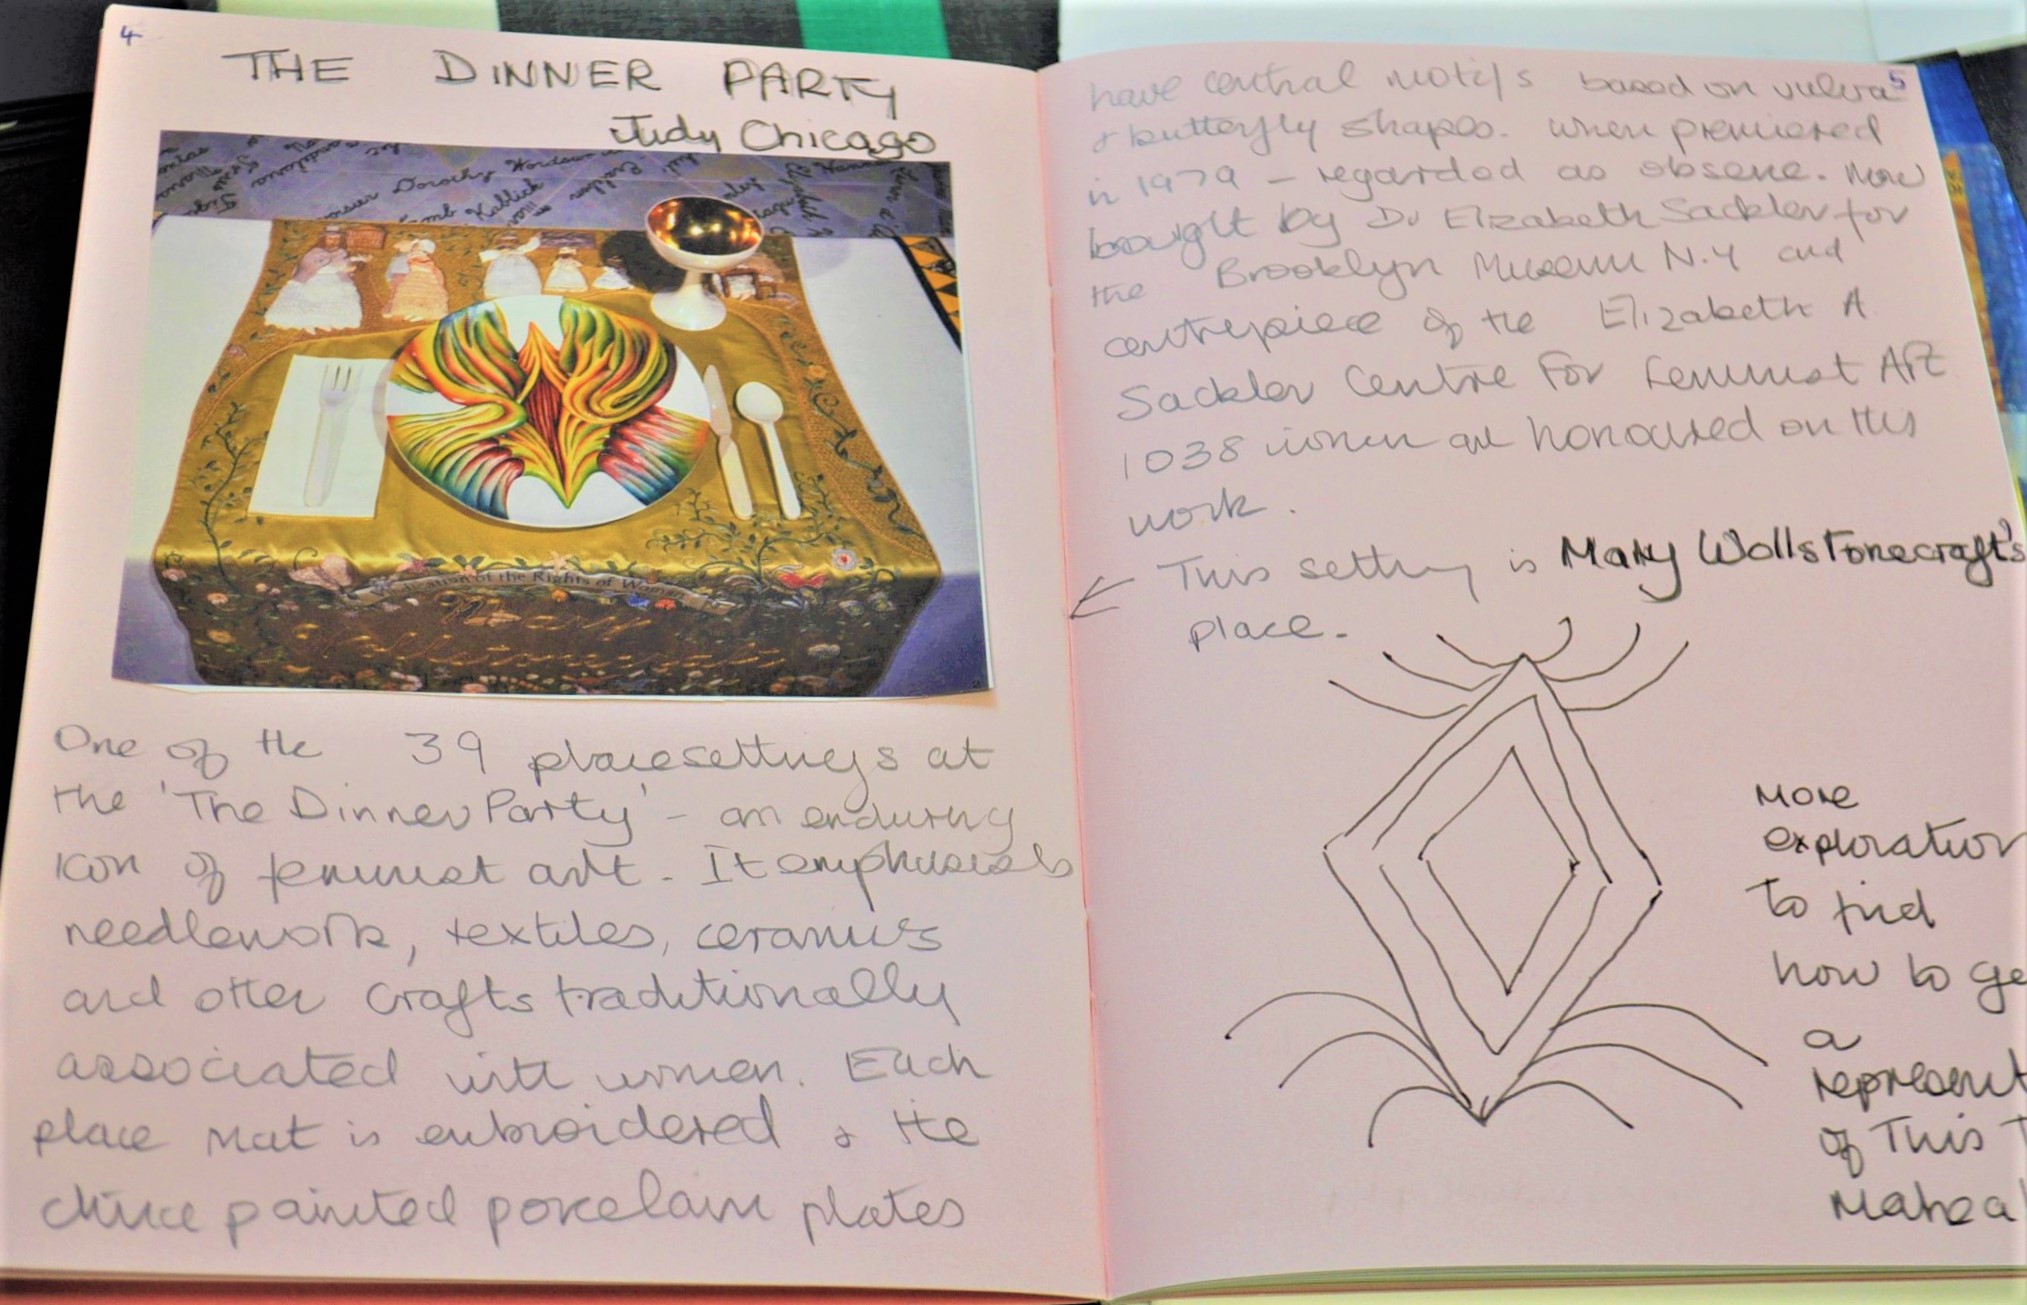 4
THE DINNER PARTY
Judy Chicago
Dorothy Wordsw
Kablick
ication of the Rights of Wom
Mary
Wollstonecraft
One of the 39 placesettings at
the 'The Dinner Party' - an enduring
icon of feminist art. It emphasises
needlework, textiles, ceramics
and other crafts traditionally
associated with women. Each
place mat is embroidered & the
china painted porcelain plates
5
have central motifs based on vulva
& butterfly shapes. When premiered
in 1979 - regarded as obsene. Now
bought by Dr Elizabeth Sackler for
the Brooklyn Museum N.Y and
centrepiece of the Elizabeth A
Sackler Centre For Feminist Art
1038 women are honoured on this
work.
This setting is Mary Wollstonecraft's
place.
More
exploration
to find
how to ge
a
represent
of This T
Make a